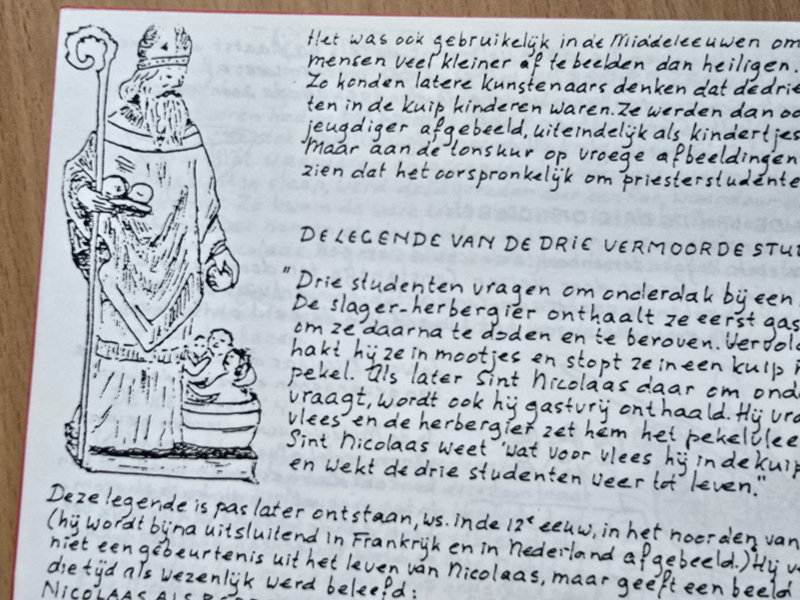 Het was ook gebruikelijk in de Middeleeuwen om
mensen veel kleiner af te beelden dan heiligen.
Zo konden latere kunstenaars denken dat de drie
ten in de kuip kinderen waren. Ze werden dan oo
jeugdiger afgebeeld, uiteindelijk als kindertjes
Maar aan de tonsuur op vroege afbeeldingen
zien dat het oorspronkelijk om priesterstudente
DE LEGENDE VAN DE DRIE VERMOORDE STU
"Drie studenten vragen om onderdak bij een
De slager-herbergier onthaalt ze eerst gas
om ze daarna te doden en te beroven. Vervol
hakt hij ze in mootjes en stopt ze in een kuip
pekel. Als later Sint Nicolaas daar om ond
vraagt, wordt ook hij gastvrij onthaald. Hij vra
vlees en de herbergier zet hem het pekelvlee
Sint Nicolaas weet wat voor vlees hij in de kuip
en wekt de drie studenten weer tot leven."
Deze legende is pas later ontstaan, ws. in de 12e eeuw, in het noorden van
(hij wordt bijna uitsluitend in Frankrijk en in Nederland afgebeeld.) Hij v
niet een gebeurtenis uit het leven van Nicolaas, maar geeft een beeld
die tijd als wezenlijk werd beleefd:
NICOLAAS ALS